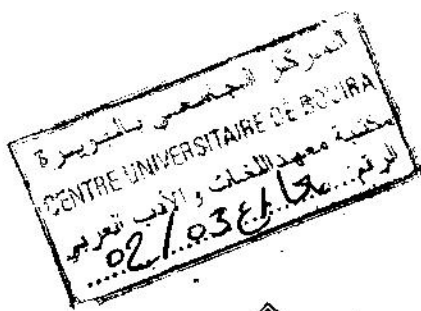 المركز الجامعي بالبويرة
CENTRE UNIVERSITAIRE DE BOUIRA
مكتبة معهد اللغات و الأدب العربي
الرقم